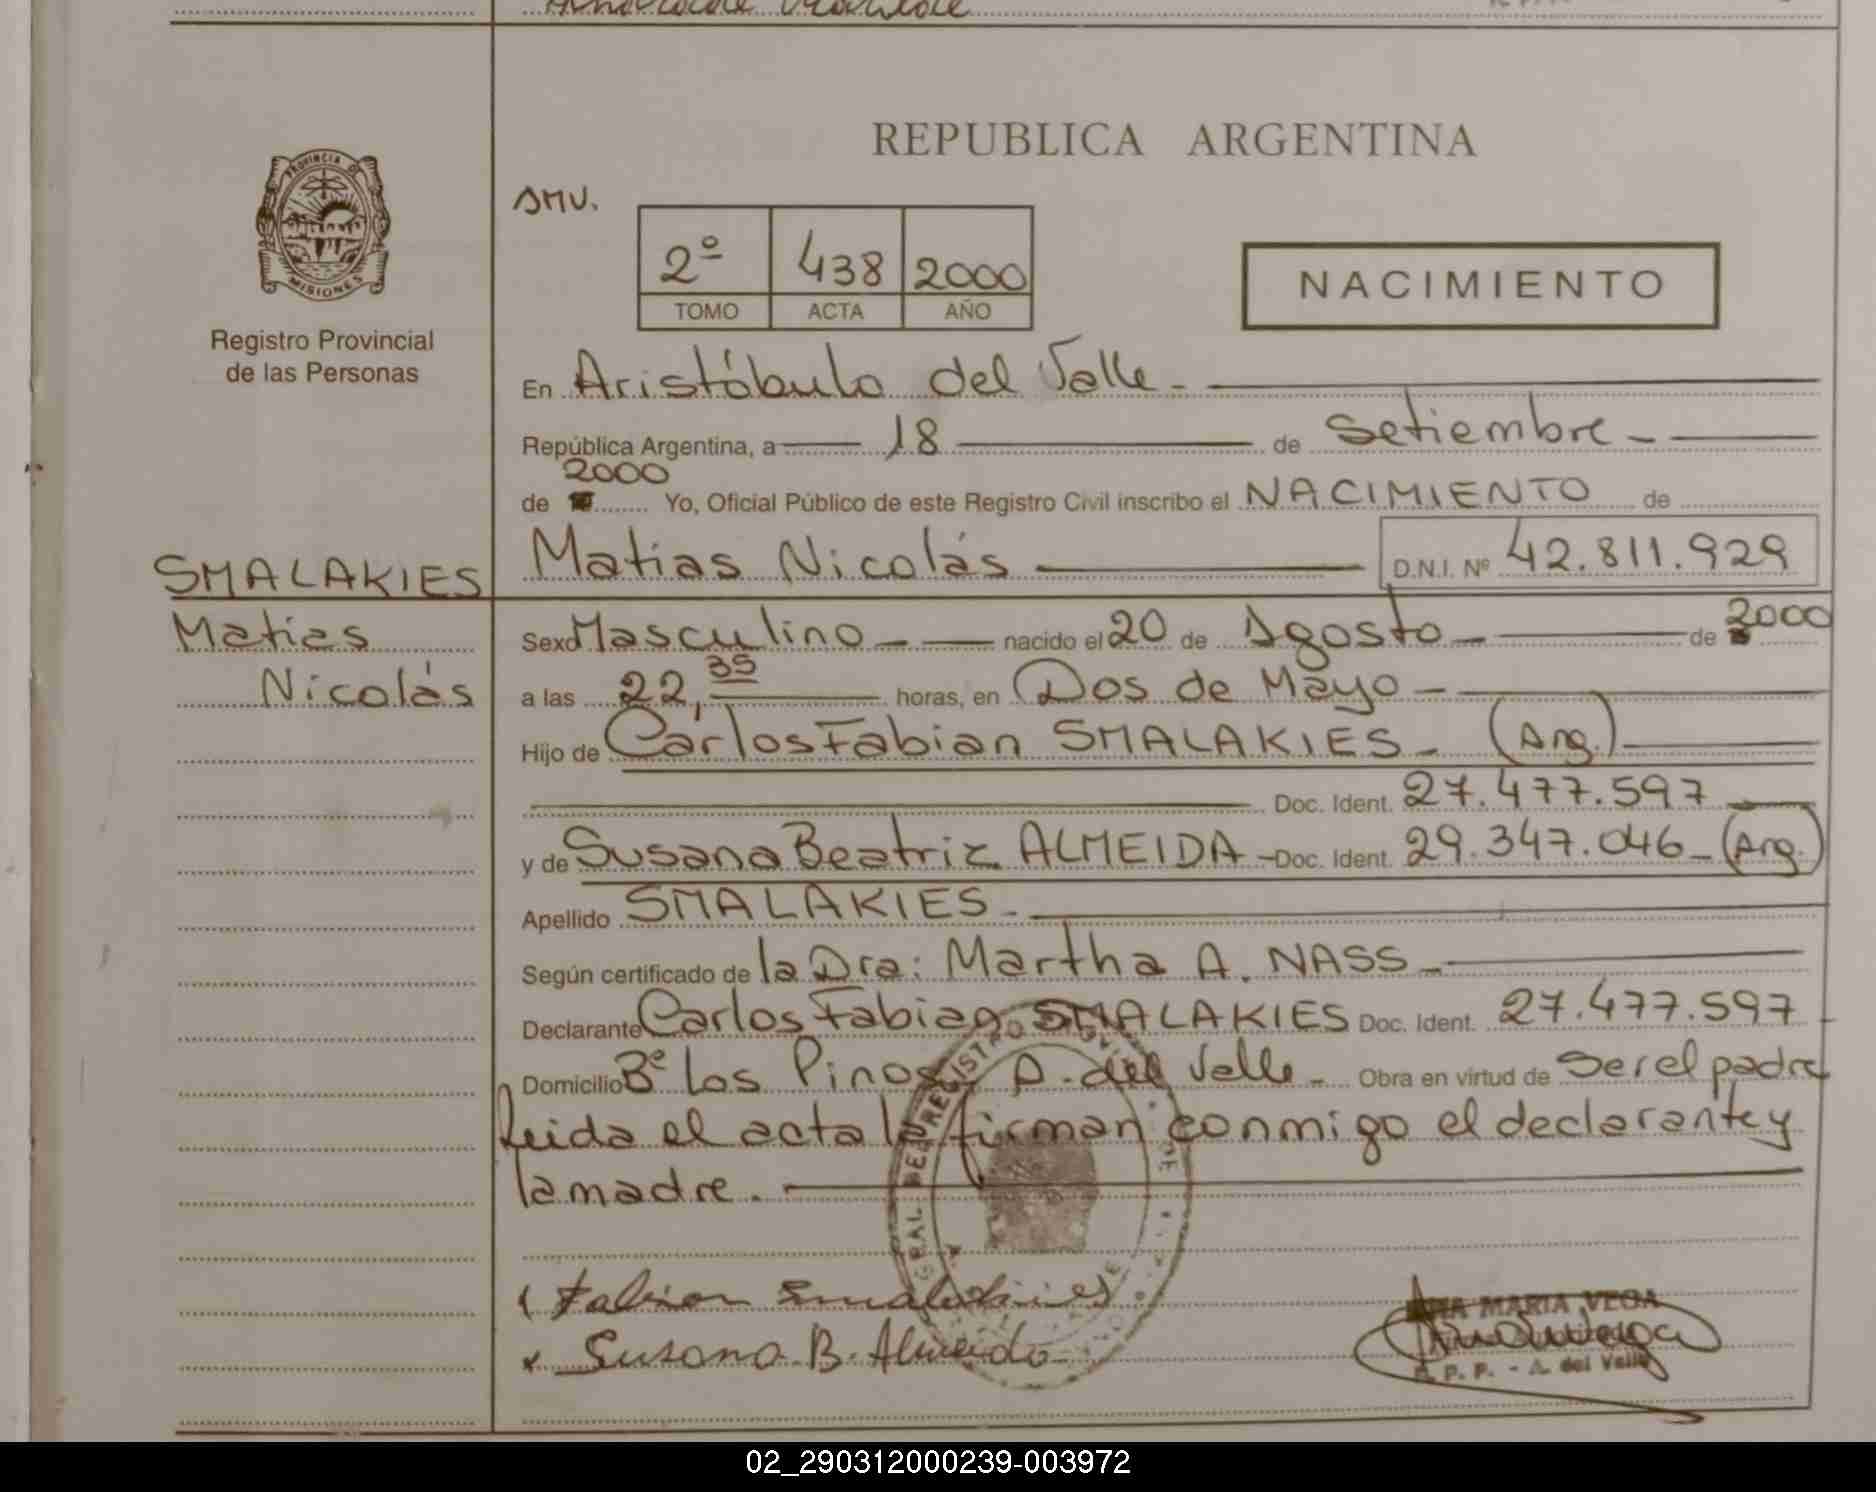 PROVINCIA DE
MISIONES
Registro Provincial
de las Personas
REPUBLICA ARGENTINA
SMV.
2º 438 2000
TOMO ACTA AÑO
NACIMIENTO
En Aristóbulo del Valle.
República Argentina, a 18 de Setiembre
2000
de Yo, Oficial Público de este Registro Civil inscribo el NACIMIENTO de
SMALAKIES
Matias Nicolás D.N.I. Nº 42.811.929
Matias
Nicolás
Sexo Masculino nacido el 20 de Agosto de 2000
a las 22,35 horas, en Dos de Mayo
Hijo de Carlos Fabian SMALAKIES (Arg.)
Doc. Ident. 27.477.597
y de Susana Beatriz ALMEIDA Doc. Ident. 29.347.046 (Arg.)
Apellido SMALAKIES
Según certificado de la Dra: Martha A. NASS
Declarante Carlos Fabian SMALAKIES Doc. Ident. 27.477.597
Domicilio Bº Los Pinos, A. del Valle Obra en virtud de ser el padre
leida el acta la firman conmigo el declarante y
la madre.
Fabian Smalakies
Susana B. Almeida
MARIA VEGA
R. P. P. - A. del Valle
02_290312000239-003972